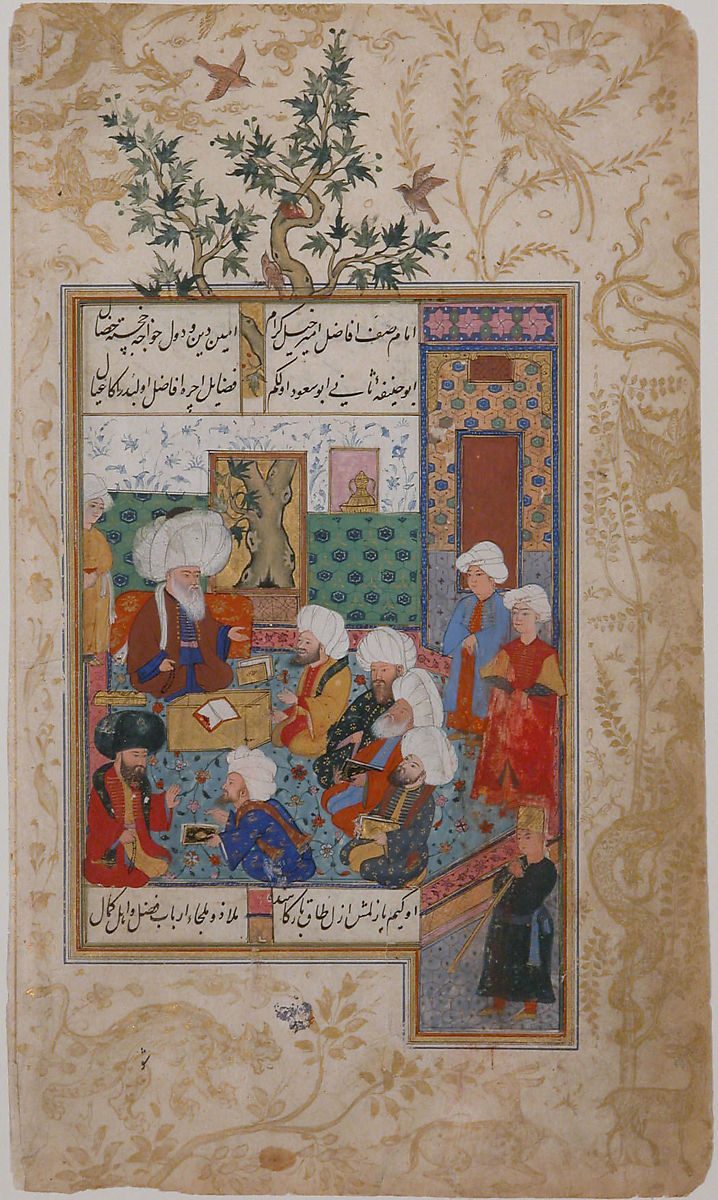 امام صف افاضل امیر خیل کرام امین دین و دول خواجه خجسته خصال
ابو حنیفه ثانی ابو سعود اولکم فضایل ایچره افاضل اولبدر اکا عیال
اوکیم یازلمش ازل طاق بارکاسنده ملاذ و ملجاء ارباب فضل و اهل کمال